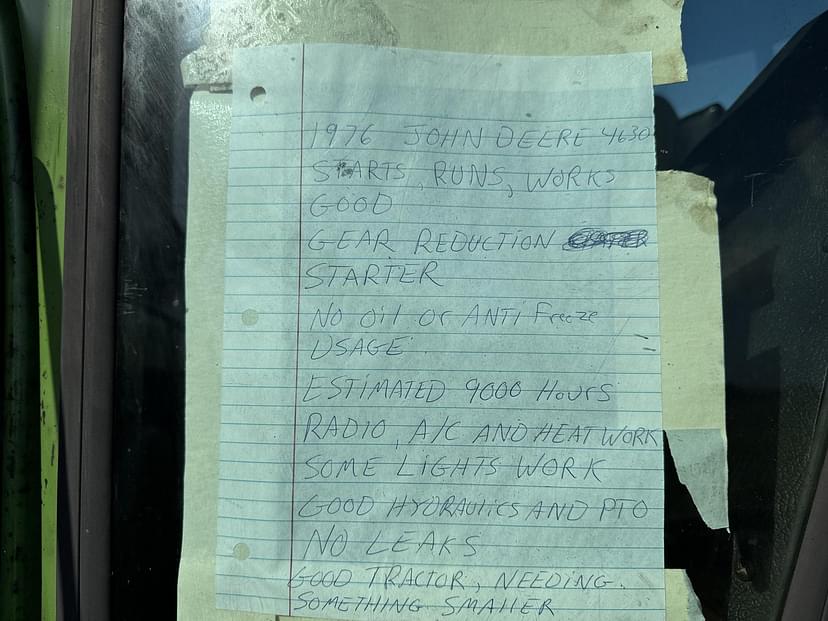 1976 JOHN DEERE 4630
STARTS, RUNS, WORKS
GOOD
GEAR REDUCTION
STARTER
NO Oil or ANTi Freeze
USAGE.
ESTIMATED 9000 Hours
RADIO, A/C AND HEAT WORK
SOME LiGHTS WORK
GOOD HYDRAULICS AND PTO
NO LEAKS
GOOD TRACTOR, NEEDING.
SOMETHING SMALLER